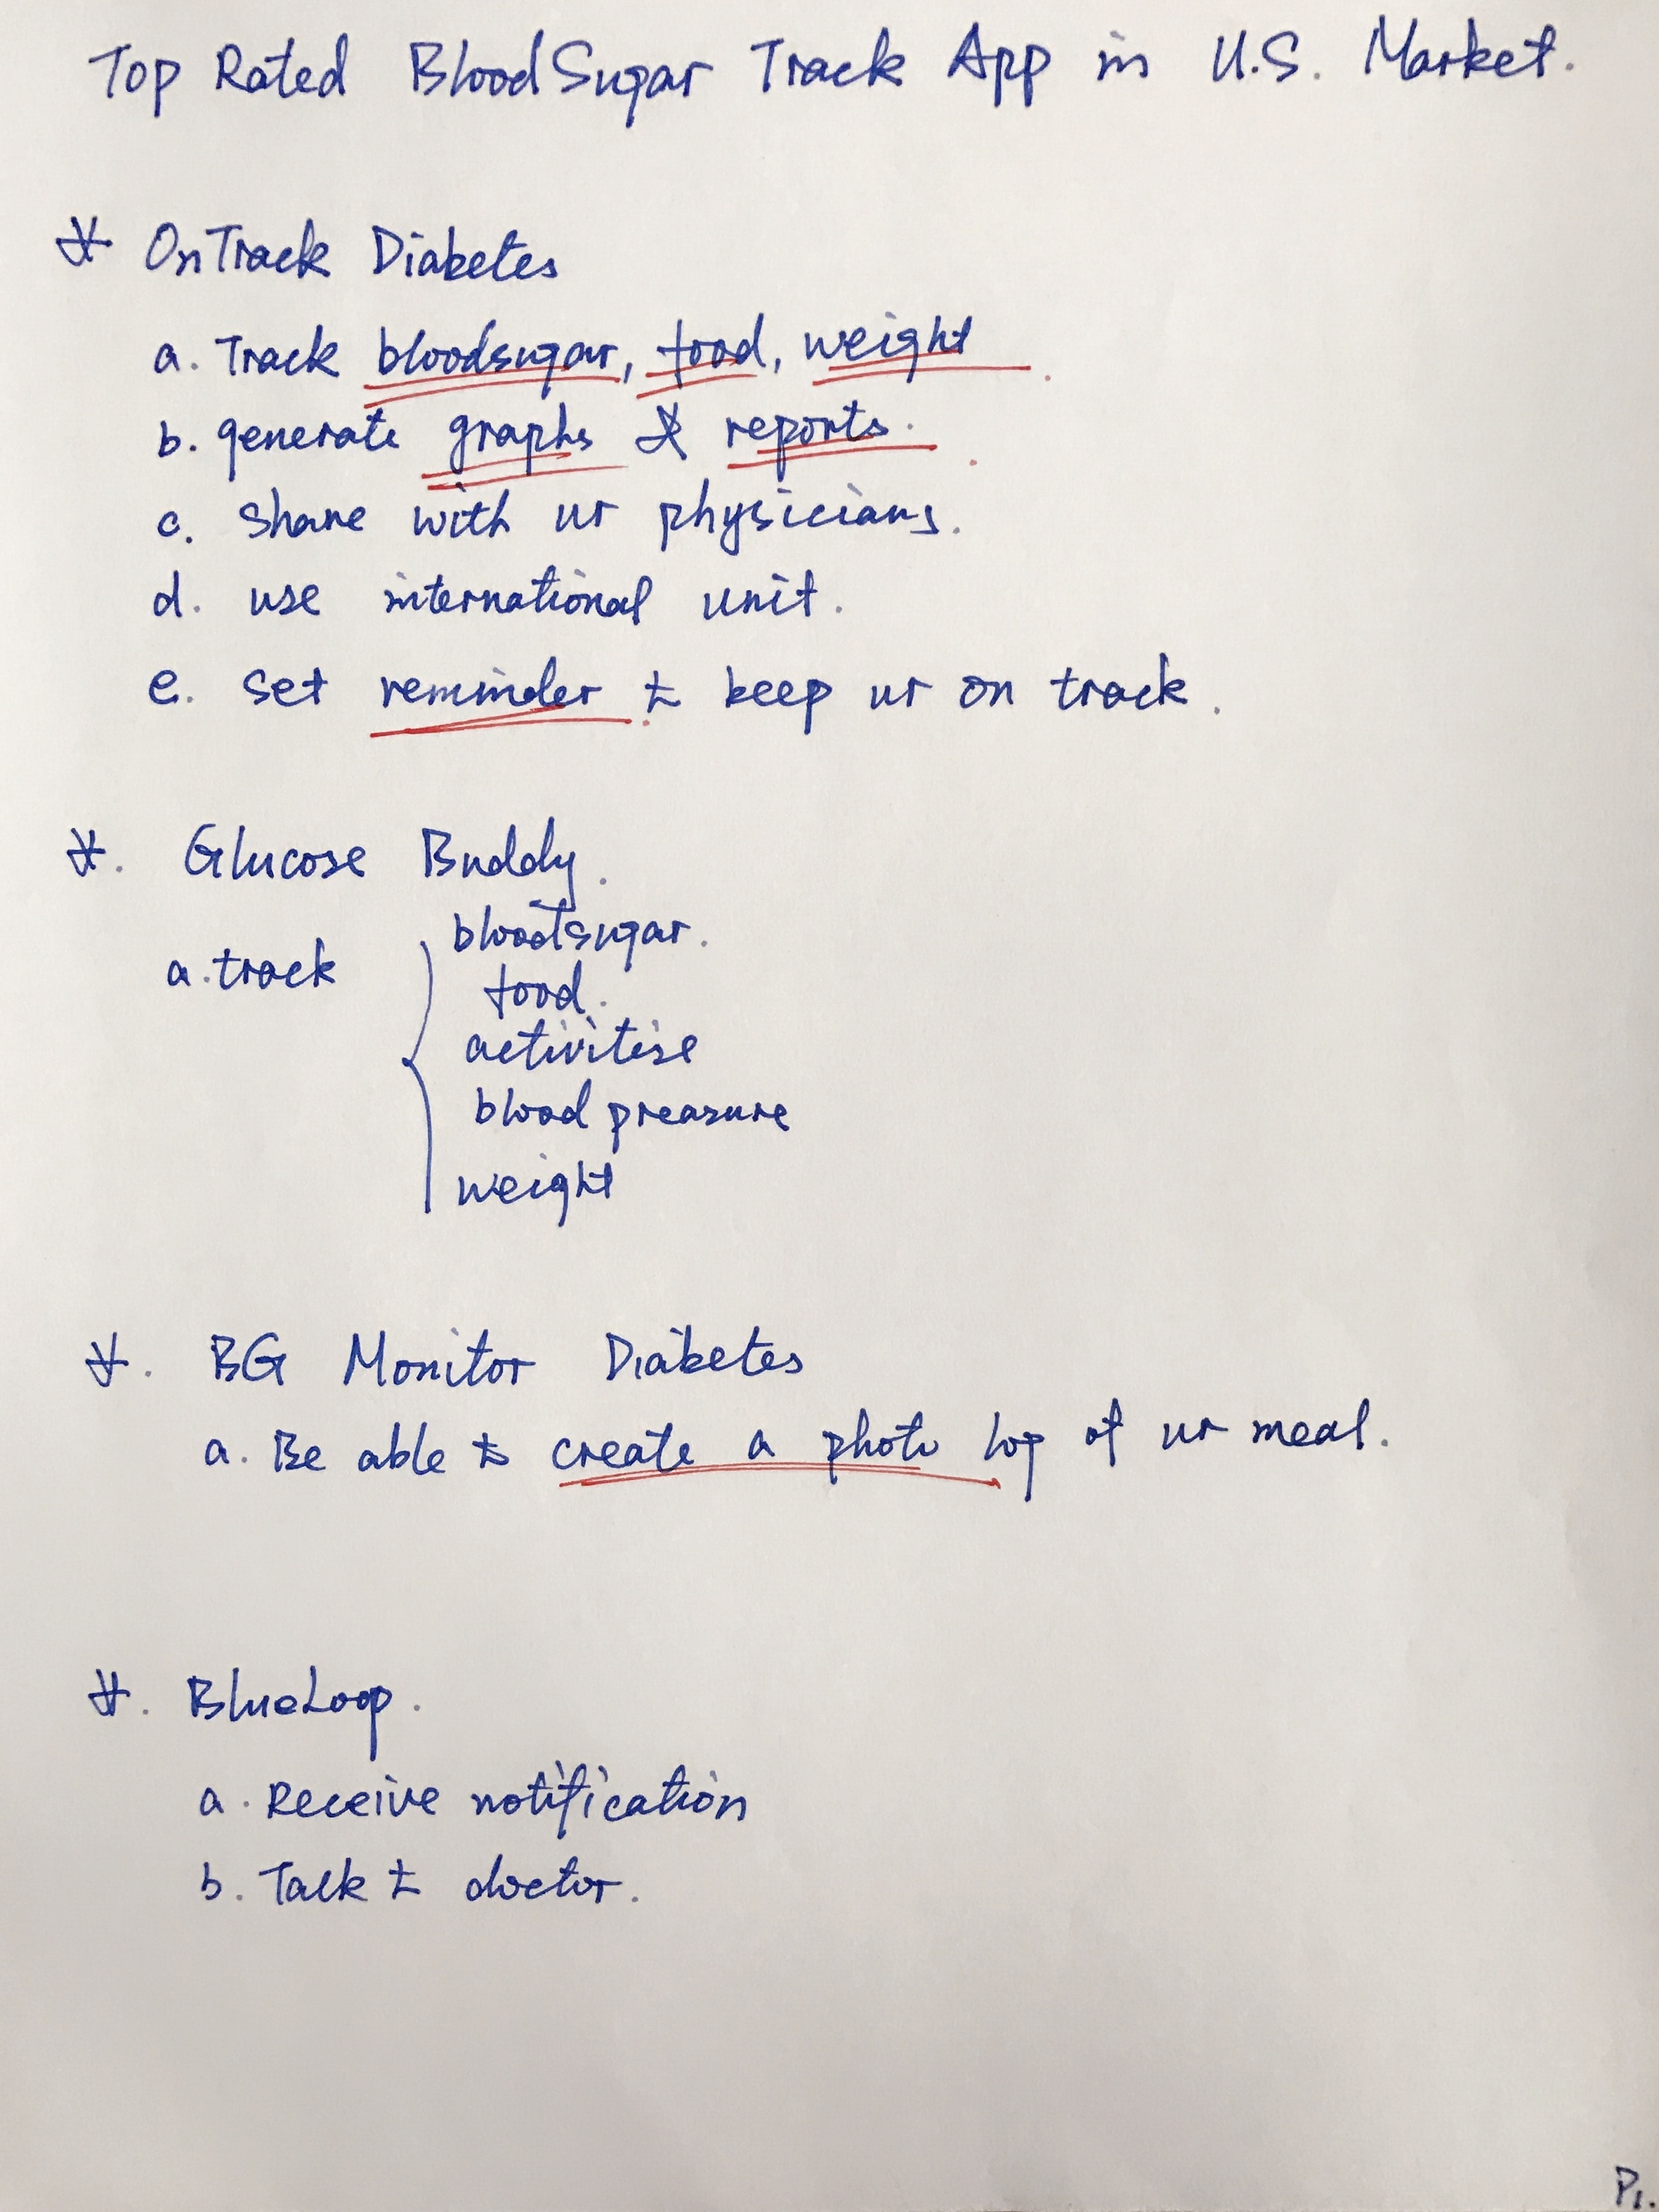 Top Rated BloodSugar Track App in U.S. Market.
* OnTrack Diabetes
a. Track bloodsugar, food, weight
b. generate graphs & reports.
c. share with ur physicians.
d. use international unit.
e. set reminder to keep ur on track.
*. Glucose Buddy.
a. track
bloodsugar.
food.
activitise
blood preasure
weight
*. BG Monitor Diabetes
a. Be able to create a photo log of ur meal.
*. BlueLoop.
a. Receive notification
b. Talk to doctor.
P1.